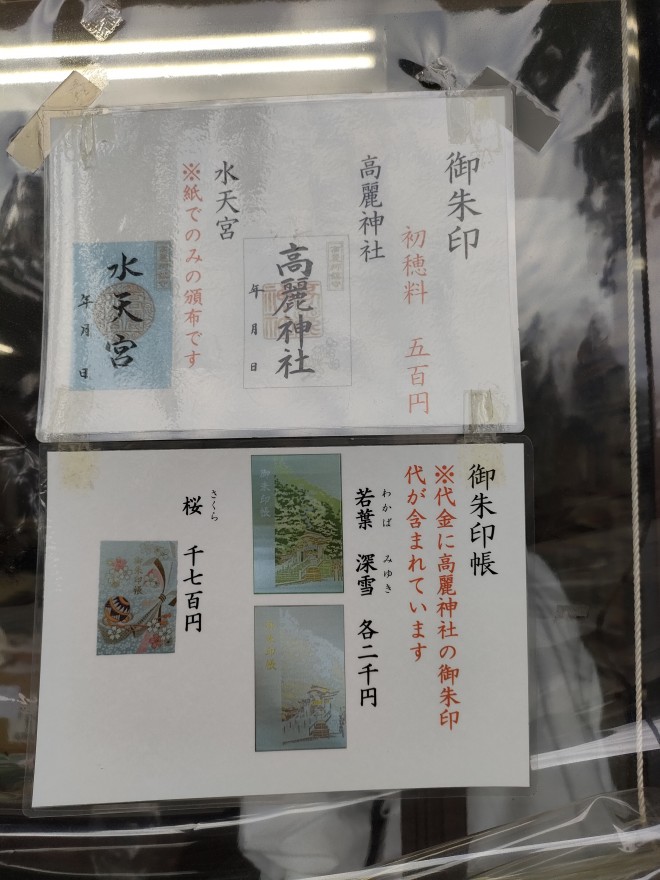 御朱印
初穂料 五百円
高麗神社
高麗神社
年 月 日
水天宮
※紙でのみの頒布です
水天宮
年 月 日
御朱印帳
※代金に高麗神社の御朱印
代が含まれています
わかば みゆき
若葉 深雪 各二千円
御朱印帳
御朱印帳
さくら
桜 千七百円